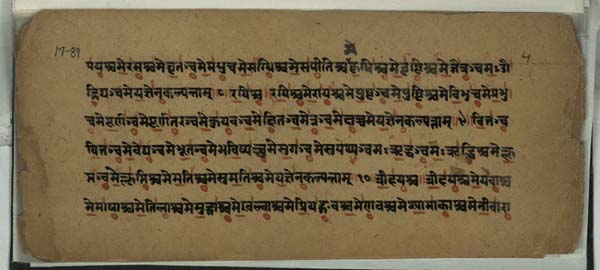 M-89 ४
पयश्चमेरसश्चमेघृतञ्चमेमधुचमेसग्धिश्चमेसपीतिश्चमेकृषिश्चमेवृष्टिश्चमेजैत्रञ्चमऽऔ
द्भिद्यञ्चमेयज्ञेनकल्पन्ताम् ८ रयिश्च रयिश्चमेरायश्चमेपुष्टञ्चमेपुष्टिश्चमेविभुचमेप्रभु
चमेपूर्णञ्चमेपूर्णतरञ्चमेकुयवञ्चमेक्षितञ्चमेन्नञ्चमेक्षुच्चमेयज्ञेनकल्पन्ताम् ९ वित्तञ्च
वित्तञ्चमेवेद्यञ्चमेभूतञ्चमेभविष्यच्चमेसुगञ्चमेसुपथ्यञ्चमऽऋद्धञ्चमऽऋद्धिश्चमेकॢ
प्तञ्चमेकॢप्तिश्चमेमतिश्चमेसुमतिश्चमेयज्ञेनकल्पन्ताम् १० व्रीहयश्च व्रीहयश्चमेयवाश्च
मेमाषाश्चमेतिलाश्चमेमुद्गाश्चमेखल्वाश्चमेप्रियङ्गवश्चमेणवश्चमेश्यामाकाश्चमेनीवारा